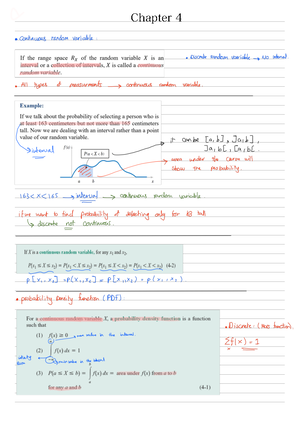 Chapter 4
• Continuous random variable :
If the range space Rx of the random variable X is an
interval or a collection of intervals, X is called a continuous
random variable.
• Discrete random variable → No interval
• All types of measurements → continuous random variable.
Example:
If we talk about the probability of selecting a person who is
at least 163 centimeters but not more than 165 centimeters
tall. Now we are dealing with an interval rather than a point
value of our random variable.
→ interval
f(x)
P(a < X < b)
a
b
x
it can be [a,b] , ]a,b[ ,
]a,b[ , [a,b[
→ area under the curve will
show the probability.
163 < X < 165 → interval → continuous random variable
if we want to find probability of selecting only for 163 tall
↳ discrete not continuous.
If X is a continuous random variable, for any x₁ and x₂,
P(x₁ ≤ X ≤ x₂) = P(x₁ < X ≤ x₂) = P(x₁ ≤ X < x₂) = P(x₁ < X < x₂) (4-2)
• probability density function (PDF)
For a continuous random variable X, a probability density function is a function
such that
(1) f(x) ≥ 0
(2) ∫ f(x) dx = 1
(3) P(a ≤ X ≤ b) = ∫ f(x) dx = area under f(x) from a to b
for any a and b
(4-1)
• Discrete : (mass function)
Σf(x) = 1